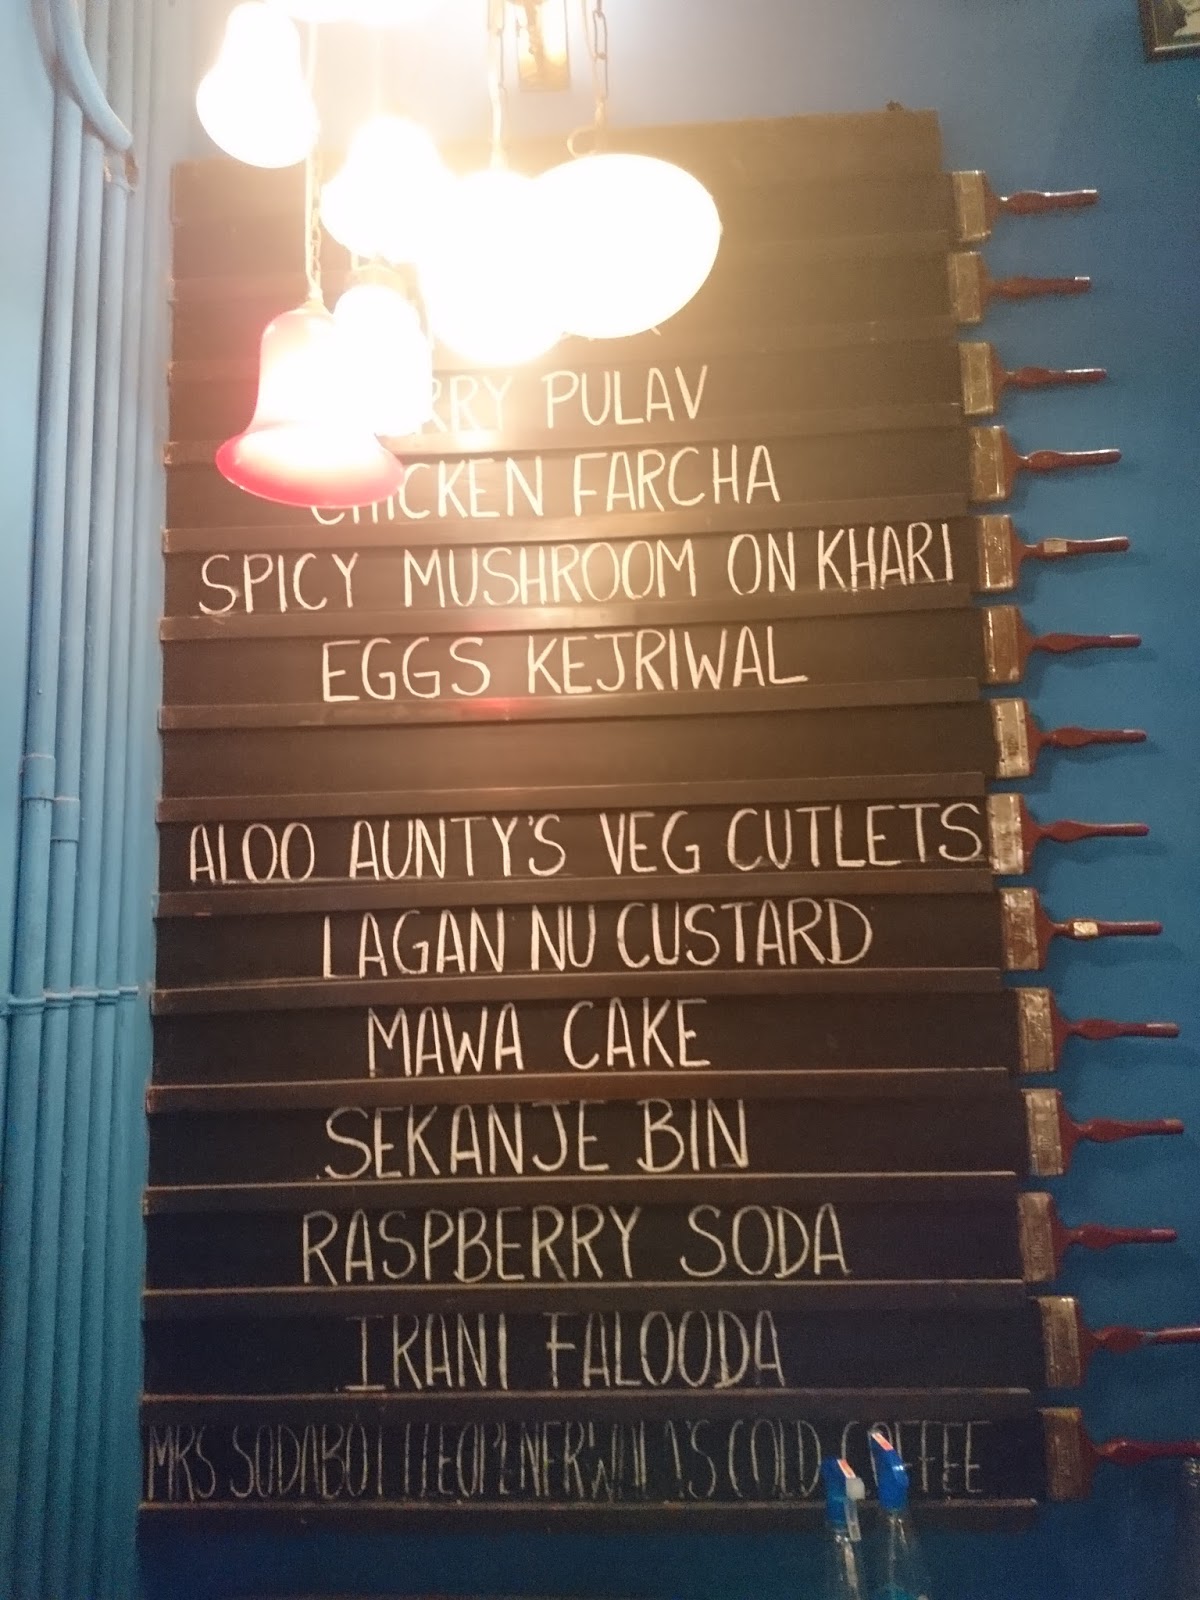 PULAV
CHICKEN FARCHA
SPICY MUSHROOM ON KHARI
EGGS KEJRIWAL
ALOO AUNTY'S VEG CUTLETS
LAGAN NU CUSTARD
MAWA CAKE
SEKANJE BIN
RASPBERRY SODA
IRANI FALOODA
MRS SODABOTTLEOPENERWALA'S COLD COFFEE